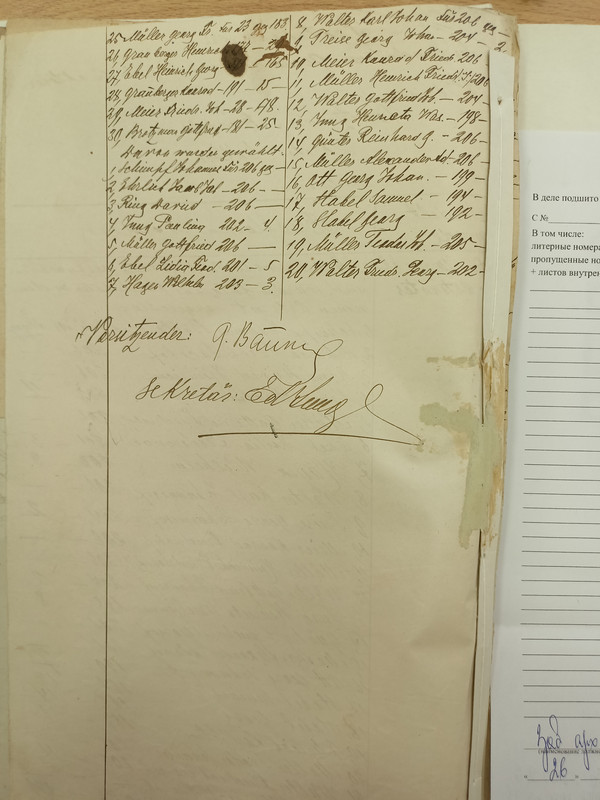 25 Müller Georg Fr. für 23 geg 183
26, Grauberger Heinrich
27, Ebel Heinrich Georg 165
28, Grauberger Konrad - 191 - 15 -
29, Meier Friedr. Joh - 28 - 178.
30, Brotzman Gottfried - 181 - 25
Davon wurden gewählt:
1, Schimpf Johannes für 206 geg -
2, Ehrlich Jacob Joh - 206 -
3, Ring David - 206 -
4, Jung Pauline 202 - 4.
5, Müller Gottfried 206 -
6, Ebel Lidia Fried. 201 - 5
7, Hager Wilhelm 203 - 3.
8, Walter Karl Johan für 206 geg -
9, Preise Georg John - 204 - 2.
10, Meier Konrad Friedr. 206
11, Müller Heinrich Friedr. 206
12, Walter Gottfried Joh. - 204 -
13, Jung Henrietta Was. - 198 -
14, Günter Reinhard G. - 206 -
15, Müller Alexander Ad - 206
16, Ott Georg Johan. - 199 -
17, Habel Samuel - 194 -
18, Habel Georg - 192 -
19, Müller Teodor Joh. - 205 -
20, Walter Friedr. Georg - 202 -
Vorsitzender:
Sekretär:
В деле подшито
С №
В том числе:
литерные номера
пропущенные но
+ листов внутрен
Зав арх
"26"